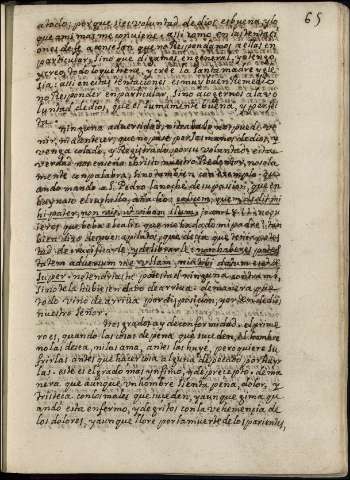 65
a todo, porque si es voluntad de dios, es buena, y lo
que a mi mas me conviene. assi como en las tentaci
ones de fe aconsejan que no Respondamos a ellas en
particular, sino que digamos, en general, yo tengo
y creo, todo lo que tiene, y cree la santa madre ygle
sia: assi en estas tentaciones es muy buen remedio
no Responder en particular, sino acogernos a la vo
luntad de dios, que es sumamente buena, y perfec
ta.
Ninguna adversidad, ni trabajo nos puede ve
nir, ni al entrar, que no passe por las manos de dios, y
venga colado, y Registrado por su voluntad. esta
verdad nos enseño christo nuestro Redemptor, no sola
mente con palabra, sino tambien con exemplo. qu
ando mando a S. Pedro la noche de su pasion, que en
baynase el cuchillo, añadio: calicem, quem dedit mi
hi pater, non vis, ut bibam illum, joan. 18.
que
bien dixo
tad de crucificarle, y de librarle: non haberes potes
tatem adversum me ullam, nisi tibi datum esset de
super. no tendrias tu potestad ninguna contra mi,
sino te la hubiesen dado de arriua. de manera que
todo vino de arriua por disposicion, y orden de dios
nuestro señor.
tres grados ay de conformidad. el prime
ro es, quando las cosas de pena que suceden, el hombre
no las desea, ni las ama, antes las huye, pero quiere su
frirlas antes que hacer cosa alguna de pecado por huyr
las. este es el grado mas ynfimo, y de precepto. de ma
nera que aunque un hombre sienta pena, dolor, y
tristeça con los males que suceden, y aunque gima qu
ando esta enfermo, y de gritos con la vehemencia de
los dolores, y aunque llore por la muerte de los parientes,